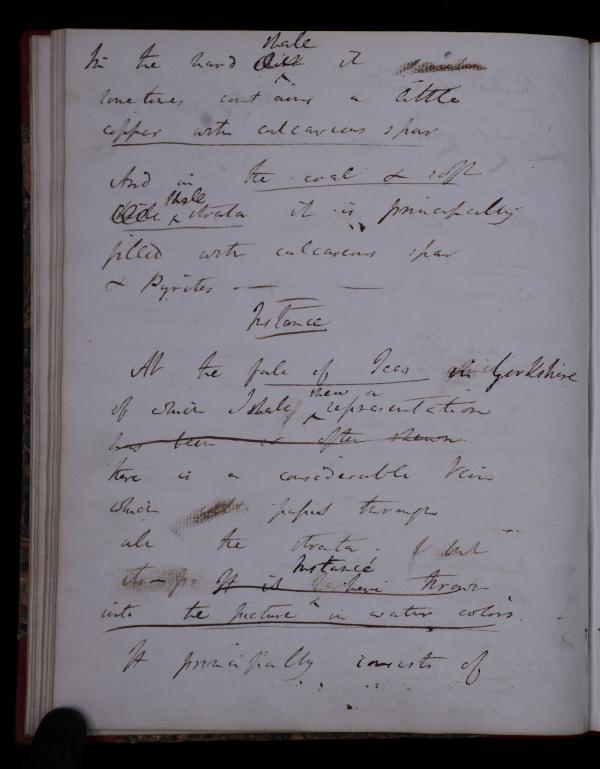 In the hard shale it
sometimes contains a little
copper with calcareous spar
And in the coal & soft
shale strata it is principally
filled with calcareous spar
& Pyrites —— ——
Instance
At the fall of Tees in Yorkshire
of which I shall shew a representation
has been so often shewn
there is a considerable Vein
which passes through
all the strata. & but
It is Instance here thrown
into the picture in water colors.
It principally consists of